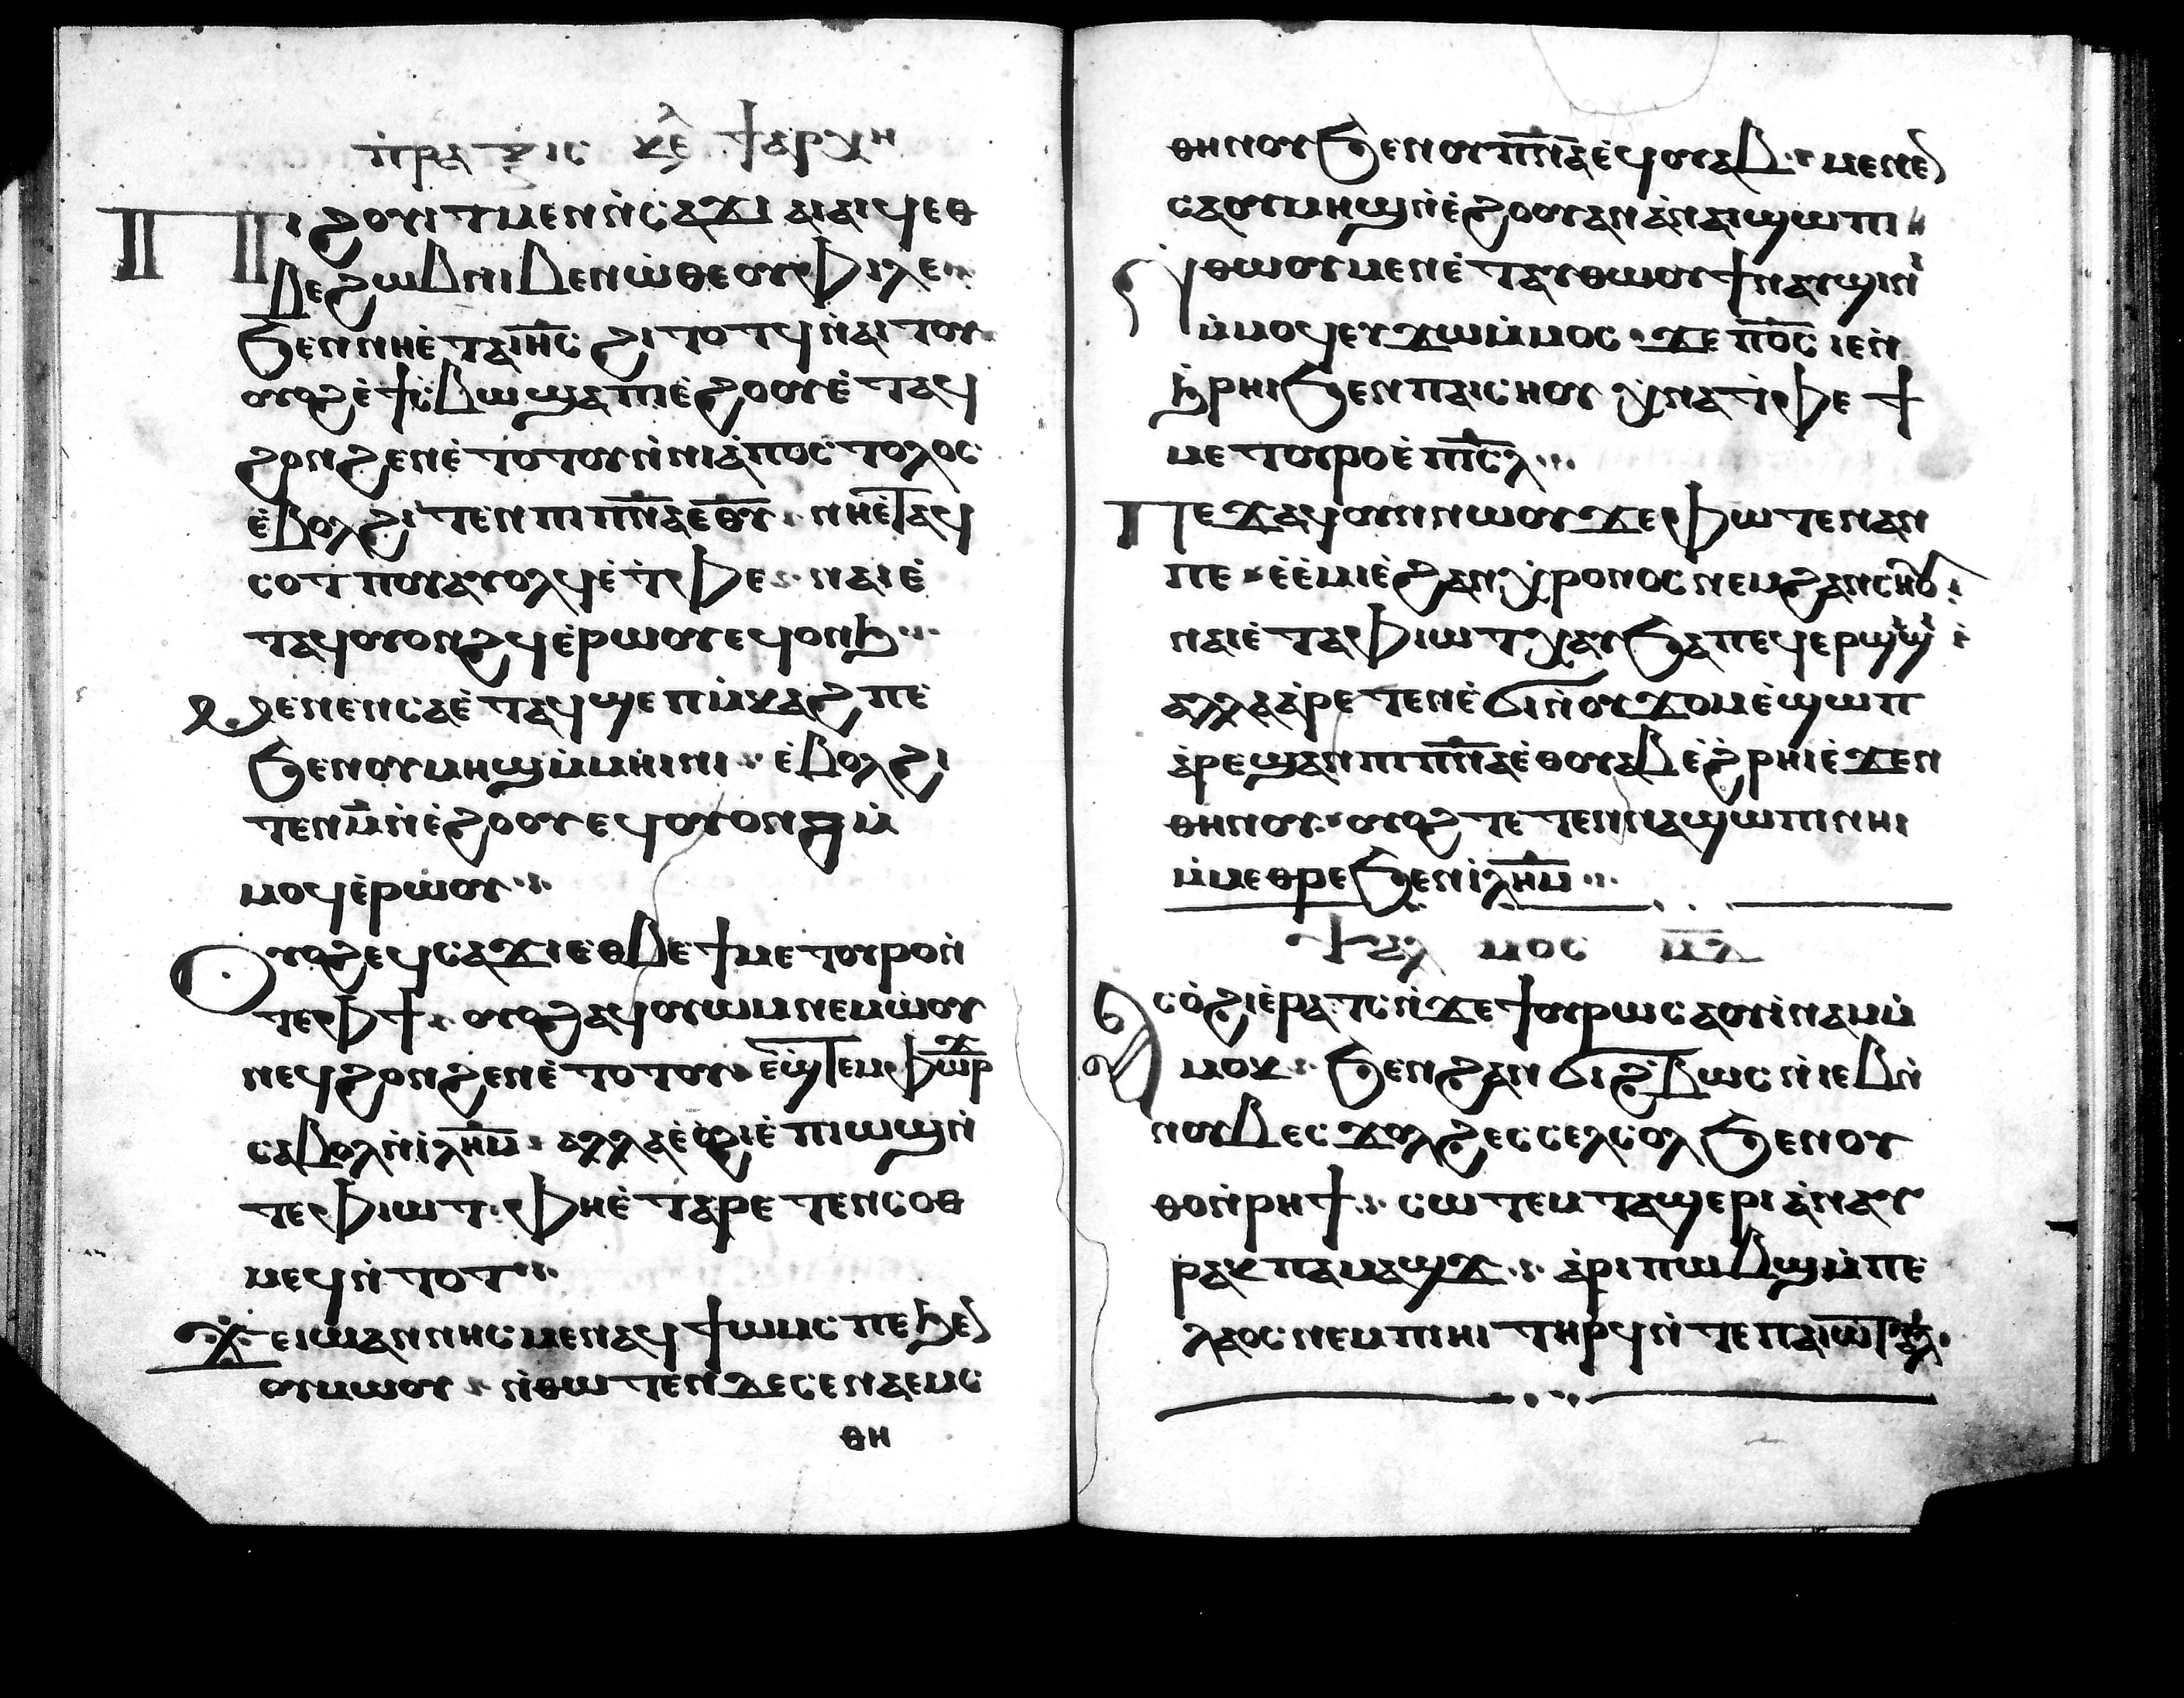 ⲡ̇ⲣⲁⲝⲓⲥ ⲕⲉ̅ ϯⲁⲣⲭⲏ
Ⲡⲓϩⲟⲩⲓⲧ ⲙⲉⲛ ⲛ̇ⲥⲁϫⲓ ⲁⲓⲁⲓϥ ⲉⲑ
ⲃⲉ ϩⲱⲃ ⲛⲓⲃⲉⲛ ⲱ̇ ⲑⲉⲟⲫⲓⲗⲉ
ϧⲉⲛ ⲛⲏⲉ̇ⲧⲁ ⲓⲏ̅ⲥ̅ ϩⲓⲧⲟⲧϥ ⲛ̇ⲁⲓⲧⲟⲩ
ⲟⲩⲟϩ ⲉ̇ϯⲥ̇ⲃⲱ ϣⲁ ⲡⲓⲉ̇ϩⲟⲟⲩ ⲉ̇ⲧⲁϥ
ϩⲟⲛϩⲉⲛ ⲉ̇ⲧⲟⲧⲟⲩ ⲛ̇ⲛⲓⲁ̇ⲡⲟⲥⲧⲟⲗⲟⲥ
ⲉ̇ⲃⲟⲗϩⲓⲧⲉⲛ ⲡⲓⲡ̅ⲛ̅ⲁ̅ ⲉ̅ⲑ̅ⲩ̅ ⲛⲏⲉ̇ⲧⲁϥ
ⲥⲟⲧⲡⲟⲩ ⲁⲩⲟⲗϥ ⲉ̇ⲧ̇ⲫⲉ ⲛⲁⲓ ⲉ̇
ⲧⲁϥⲟⲩⲟⲛϩϥ ⲉ̇ⲣⲱⲟⲩ ⲉϥⲟⲛϧ
Ⲙⲉⲛⲉⲛⲥⲁ ⲉ̇ⲧⲁϥϣⲉⲡ ⲙ̇ⲕⲁϩ ⲡⲉ
ϧⲉⲛ ⲟⲩⲙⲏϣ ⲙ̇ⲙⲏⲓⲛⲓ ⲉ̇ⲃⲟⲗϩⲓ
ⲧⲉⲛ ⲙ̅ ⲛ̇ⲉ̇ϩⲟⲟⲩ ⲉϥⲟⲩⲟⲛϩ ⲙ̇
ⲙⲟϥ ⲉ̇ⲣⲱⲟⲩ
Ⲟⲩⲟϩ ⲉϥⲥⲁϫⲓ ⲉⲑⲃⲉ ϯⲙⲉⲧⲟⲩⲣⲟ ⲛ̇
ⲧⲉ ⲫϯ ⲟⲩⲟϩ ⲁϥⲟⲩⲱⲙ ⲛⲉⲙⲱⲟⲩ
ⲛⲉϥϩⲟⲛϩⲉⲛ ⲉ̇ⲧⲟⲧⲟⲩ ⲉ̇ϣ̇ⲧⲉⲙⲫⲱⲣϫ
ⲥⲁⲃⲟⲗ ⲛ̇ⲓ̇ⲗ̅ⲏ̅ⲙ̅ ⲁⲗⲗⲁ ⲉ̇ⲟ̇ϩⲓ ⲉ̇ⲡⲓⲱϣ ⲛ̇
ⲧⲉ ⲫⲓⲱⲧ ⲫⲏⲉ̇ⲧⲁⲣⲉⲧⲉⲛⲥⲟⲑ
ⲙⲉϥ ⲛ̇ⲧⲟⲧ
Ϫⲉ ⲓⲱⲁⲛⲛⲏⲥ ⲙⲉⲛ ⲁϥϯⲱⲙⲥ ⲡⲉ ϧⲉⲛ
ⲟⲩⲙⲱⲟⲩ ⲛ̇ⲑⲱⲧⲉⲛ ϫⲉ ⲥⲉⲛⲁⲉⲙⲥ
ⲑⲏ
ⲑⲏⲛⲟⲩ ϧⲉⲛ ⲟⲩⲡ̅ⲛ̅ⲁ̅ ⲉ̇ϥⲟⲩⲁⲃ ⲙⲉⲛⲉⲛ
ⲥⲁ ⲟⲩⲙⲏϣ ⲛ̇ⲉ̇ϩⲟⲟⲩ ⲁⲛ ⲁ̇ⲛⲁⲓϣⲱⲡⲓ
Ⲛ̇ⲑⲱⲟⲩ ⲙⲉⲛ ⲉ̇ⲧⲁⲩⲑⲱⲟⲩϯ ⲛⲁⲩϣⲓⲛⲓ
ⲙ̇ⲙⲟϥ ⲉⲩϫⲱ ⲙ̇ⲙⲟⲥ ϫⲉ ⲡ̅ⲟ̅ⲥ̅ ⲓⲉⲛ
ϧ̇ⲣⲏⲓ ϧⲉⲛ ⲡⲁⲓⲥⲏⲟⲩ ⲭⲛⲁⲧ̇ⲫⲉ ϯ
ⲙⲉⲧⲟⲩⲣⲟ ⲉ̇ⲡ̅ⲓ̅ⲥ̅ⲗ̅
Ⲡⲉϫⲁϥ ⲟⲩⲛ ⲛⲱⲟⲩ ϫⲉ ⲫⲱⲧⲉⲛ ⲁⲛ
ⲡⲉ ⲉ̇ⲉ̇ⲙⲓ ⲉ̇ϩⲁⲛⲭⲣⲟⲛⲟⲥ ⲛⲉⲙ ϩⲁⲛⲥⲏⲟⲩ
ⲛⲁⲓ ⲉ̇ⲧⲁ ⲫⲓⲱⲧ ⲭⲁⲩ ϧⲁ ⲡⲉϥⲉⲣϣⲓϣⲓ
ⲁⲗⲗⲁ ⲁ̇ⲣⲉⲧⲉⲛⲉ̇ϭⲓ ⲛ̇ⲟⲩϫⲟⲙ ⲉ̇ϣⲱⲡ
ⲁ̇ⲣⲉϣⲁⲛ ⲡⲓⲡ̅ⲛ̅ⲁ̅ ⲉ̇ⲑⲟⲩⲁⲃ ⲉ̇ϩ̇ⲣⲏⲓ ⲉ̇ϫⲉⲛ
ⲑⲏⲛⲟⲩ ⲟⲩⲟϩ ⲧⲉⲧⲉⲛⲛⲁϣⲱⲡⲓ ⲛⲏⲓ
ⲙ̇ⲙⲉⲑⲣⲉ ϧⲉⲛ ⲓ̇ⲗ̅ⲏ̅ⲙ̅
ⲯⲁⲗⲙⲟⲥ ⲙ̅ⲇ̅
Ⲁⲥⲟ̇ϩⲓ ⲉ̇ⲣⲁⲧⲥ ⲛ̇ϫⲉ ϯⲟⲩⲣⲱ ⲥⲁⲟⲩⲓ̇ⲛⲁⲙ ⲙ̇
ⲙⲟⲕ ϧⲉⲛ ϩⲁⲛϭⲓϩ̇ⲃⲱⲥ ⲛ̇ⲓⲉⲃ ⲛ̇
ⲛⲟⲩⲃ ⲉⲥϫⲟⲗϩ ⲉⲥⲥⲉⲗⲥⲟⲗ ϧⲉⲛ ⲟⲩ
ⲑⲟ ⲛ̇ⲣⲏϯ ⲥⲱⲧⲉⲙ ⲧⲁϣⲉⲣⲓ ⲁ̇ⲛⲁⲩ
ⲣⲁⲕ ⲡⲁⲙⲁϣϫ ⲁ̇ⲣⲓⲡⲱⲃϣ ⲙ̇ⲡⲉ
ⲗⲁⲟⲥ ⲛⲉⲙ ⲡⲓⲏⲓ ⲧⲏⲣϥ ⲛ̇ⲧⲉ ⲡⲁⲓⲱⲧ ⲁ̅ⲗ̅